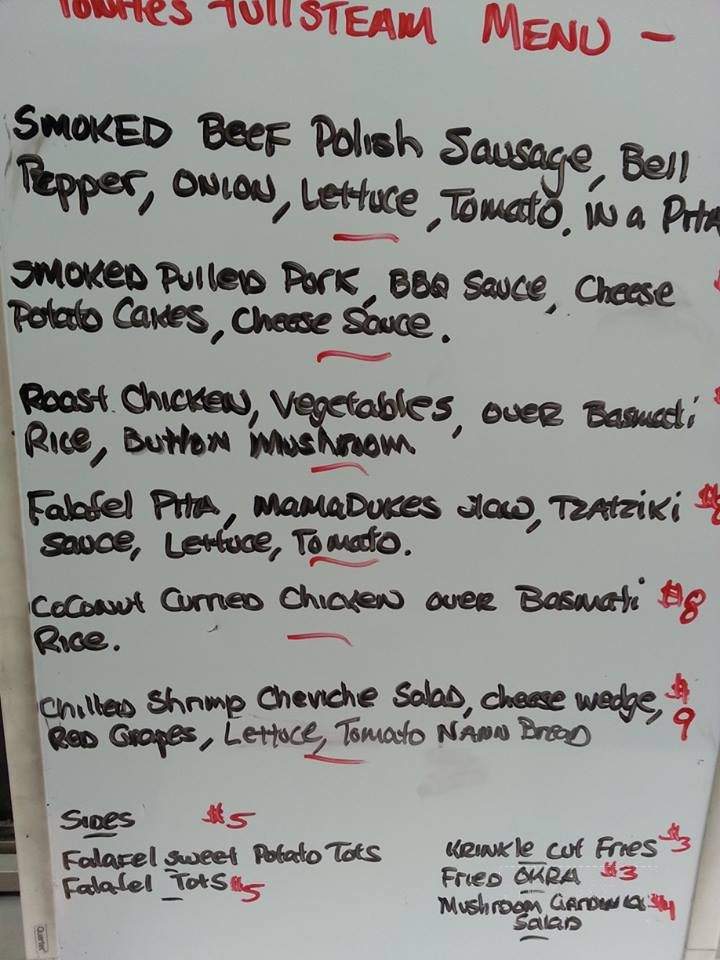 Tonites full STEAM MENU -
SMOKED Beef Polish Sausage, Bell
Pepper, ONION, Lettuce, Tomato. IN a PitA
SMOKED Pulled Pork, BBQ Sauce, Cheese
Potato Cakes, Cheese Sauce.
Roast Chicken, Vegetables, over Basmati
Rice, Button Mushroom
Falafel PitA, MAMADUKES Slaw, TZATZiKi $
Sauce, Lettuce, Tomato.
Coconut Curried Chicken over Basmati $8
Rice.
Chilled Shrimp Cheviche Salad, cheese wedge, $9
Red Grapes, Lettuce, Tomato NANN Bread
Sides $5
Falafel Sweet Potato Tots
Falafel Tots $5
KRINKLE CUT Fries $3
Fried OKRA $3
Mushroom $4
Salad
Quartet